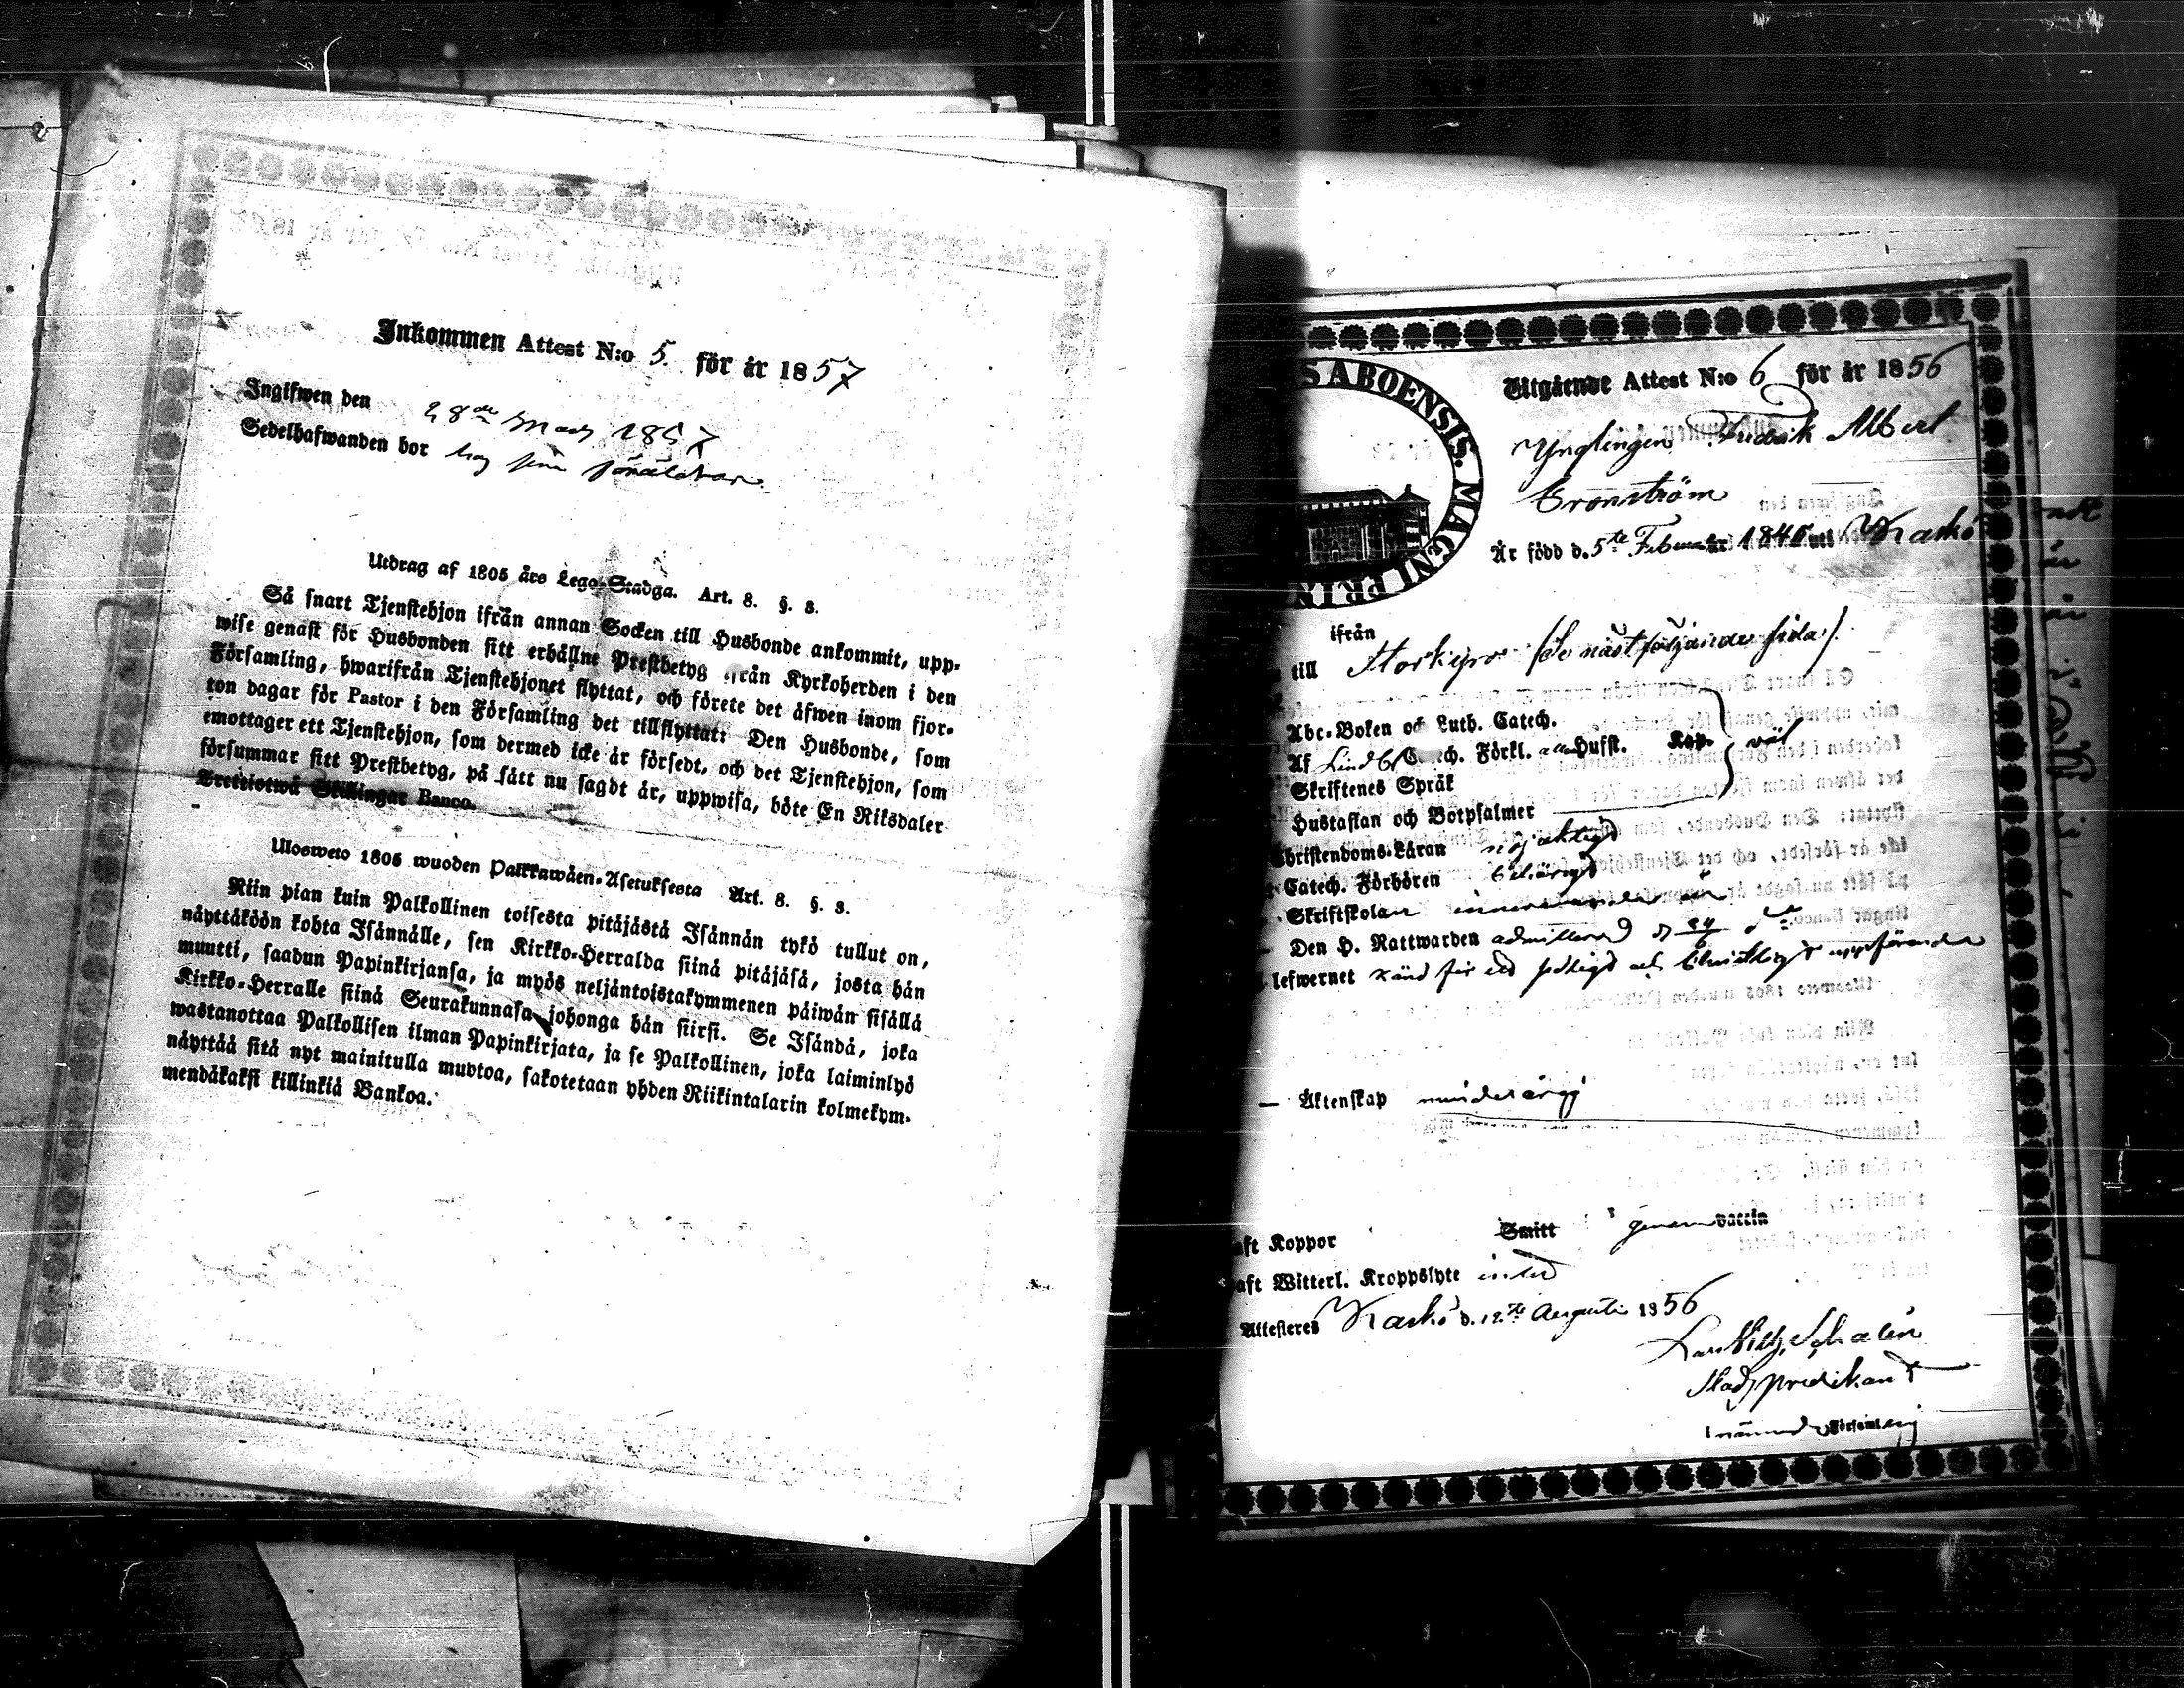 Inkommen Attest N:o 5. för år 1857
Ingifwen den 28de Mars 1857
Sedelhafwanden bor hos sina föräldrar.
Utdrag af 1805 års Lego-Stadga. Art. 8. §. 3.
Så snart Tjenstehjon ifrån annan Socken till Husbonde ankommit, upp-
wise genast för Husbonden sitt erhållne Prestbetyg ifrån Kyrkoherden i den
Församling, hwarifrån Tjenstehjonet flyttat, och förete det äfwen inom fjor-
ton dagar för Pastor i den Församling det tillflyttat: Den Husbonde, som
emottager ett Tjenstehjon, som dermed icke är försedt, och det Tjenstehjon, som
försummar sitt Prestbetyg, på sätt nu sagdt är, uppwisa, böte En Riksdaler
Trettiotwå Skillingar Banco.
Ulosweto 1805 wuoden Palkkawäen-Asetuksesta Art. 8. §. 3.
Niin pian kuin Palkollinen toisesta pitäjästä Isännän tykö tullut on,
näyttäköön kohta Isännälle, sen Kirkko-Herralda siinä pitäjäsä, josta hän
muutti, saadun Papinkirjansa, ja myös neljäntoistakymmenen päiwän sisällä
Kirkko-Herralle siinä Seurakunnasa johonga hän siirsi. Se Isändä, joka
wastanottaa Palkollisen ilman Papinkirjata, ja se Palkollinen, joka laiminlyö
näyttää sitä nyt mainitulla muotoa, sakotetaan yhden Riikintalarin kolmekym-
mendäkaksi killinkiä Bankoa.
S ABOENSIS. MAGNI PRIN
Utgående Attest N:o 6 för år 1856
Ynglingen Fredrik Albert
Cronström
Är född d. 5te Februari 1840 uti Kaskö
ifrån
till Storkyro (Se näst följande sida).
Abc-Boken och Luth. Catech.
Af Catech. Förkl. Hufst. Kap. väl
Skriftenes Språk
Hustaflan och Botpsalmer
Christendoms-Läran nöjaktigt
Catech. Förhören
Skriftskolan
Den H. Nattwarden admitterad d.
lefwernet känd för ett och uppförande
Äktenskap minderårig
aft Koppor Smitt genom vaccin
aft Witterl. Kroppslyte intet
Attesteras Kaskö d. 12te Augusti 1856
Schalin
Stads predikant
Församling